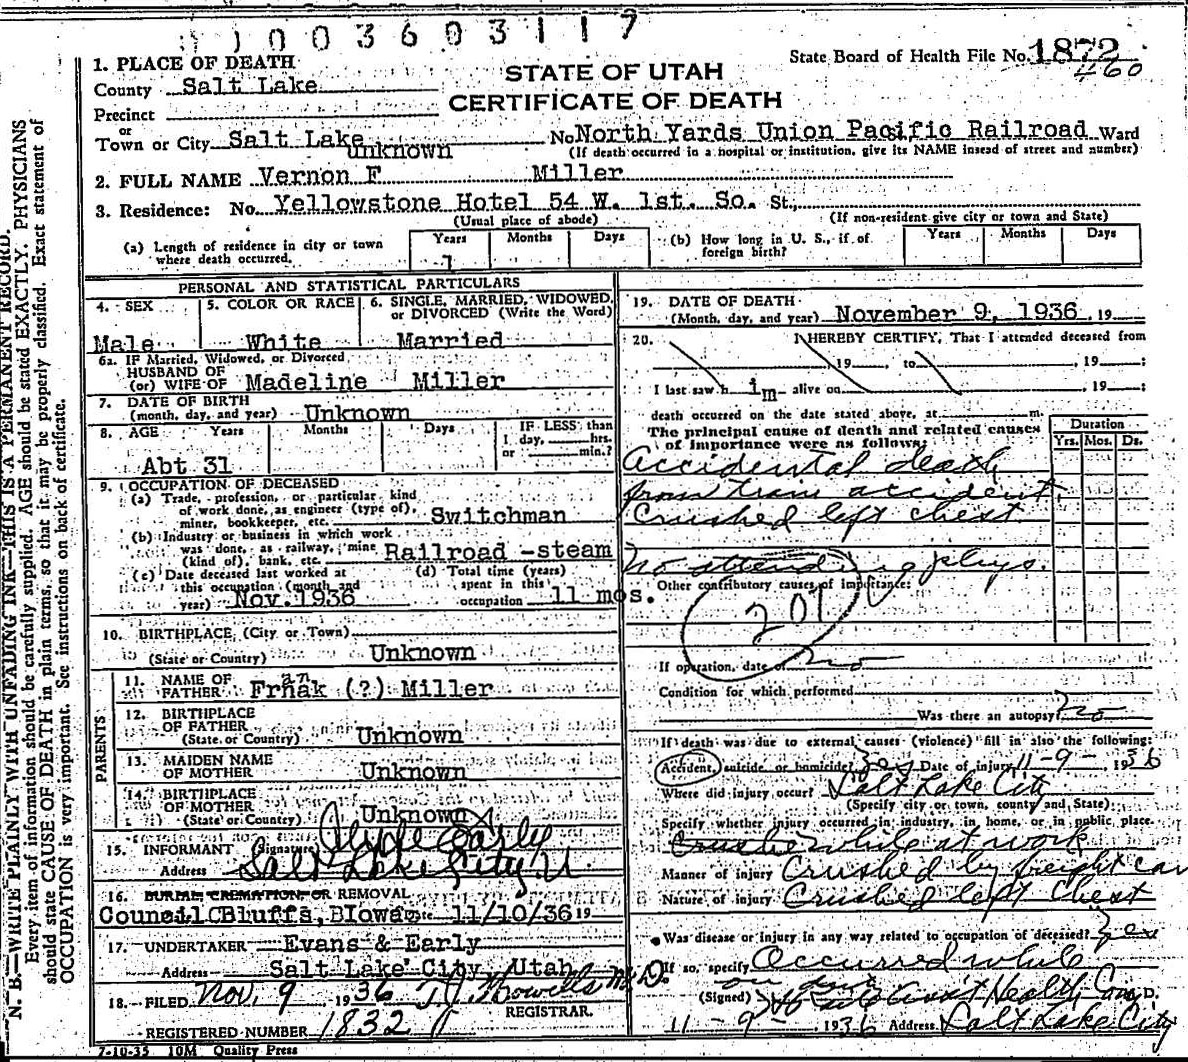 1003603117
State Board of Health File No. 1872
460
1. PLACE OF DEATH
County Salt Lake
STATE OF UTAH
CERTIFICATE OF DEATH
Precinct
or
Town or City Salt Lake No. North Yards Union Pacific Railroad Ward
unknown (If death occurred in a hospital or institution, give its NAME insead of street and number)
2. FULL NAME Vernon F Miller
3. Residence: No. Yellowstone Hotel 54 W. 1st. So. St.,
(Usual place of abode) (If non-resident give city or town and State)
(a) Length of residence in city or town where death occurred. Years 1 Months Days
(b) How long in U. S., if of foreign birth? Years Months Days
PERSONAL AND STATISTICAL PARTICULARS
4. SEX Male
5. COLOR OR RACE White
6. SINGLE, MARRIED, WIDOWED, or DIVORCED (Write the Word) Married
6a. IF Married, Widowed, or Divorced
HUSBAND OF
(or) WIFE OF Madeline Miller
7. DATE OF BIRTH
(month, day, and year) Unknown
8. AGE Years Months Days IF LESS than
1 day, hrs.
or min.?
Abt 31
9. OCCUPATION OF DECEASED
(a) Trade, profession, or particular kind
of work done, as engineer (type of),
miner, bookkeeper, etc. Switchman
(b) Industry or business in which work
was done, as railway, mine
(kind of), bank, etc. Railroad -steam
(c) Date deceased last worked at
this occupation (month and
year) Nov. 1936
(d) Total time (years)
spent in this
occupation 11 mos.
10. BIRTHPLACE, (City or Town)
(State or Country) Unknown
PARENTS
11. NAME OF
FATHER Frnak (?) Miller
an
12. BIRTHPLACE
OF FATHER
(State or Country) Unknown
13. MAIDEN NAME
OF MOTHER Unknown
14. BIRTHPLACE
OF MOTHER
(State or Country) Unknown
15. INFORMANT (Signature) Clyde Early
Address Salt Lake City, U
16. BURIAL CREMATION OR REMOVAL
Council Bluffs, Iowa Date 11/10/36 19
17. UNDERTAKER Evans & Early
Address Salt Lake City, Utah
18. FILED Nov. 9 1936 M.D.
REGISTRAR.
REGISTERED NUMBER 1832
7-10-35 10M Quality Press
19. DATE OF DEATH
(Month, day, and year) November 9, 1936, 19
20. I HEREBY CERTIFY, That I attended deceased from
, 19 , to , 19 ;
I last saw h im alive on , 19 ;
death occurred on the date stated above, at m.
The principal cause of death and related causes
of importance were as follows:
Duration
Yrs. Mos. Ds.
Accidental death
from train accident.
Crushed left chest
No attending phys.
Other contributory causes of importance:
207
If operation, date of no
Condition for which performed
Was there an autopsy? no
If death was due to external causes (violence) fill in also the following:
Accident, suicide or homicide? yes Date of injury 11-9- 1936
Where did injury occur? Salt Lake City
(Specify city or town, county and State)
Specify whether injury occurred in industry, in home, or in public place.
while at work
Manner of injury Crushed by freight car
Nature of injury Crushed left chest
Was disease or injury in any way related to occupation of deceased? yes
If so, specify Occurred while
on duty
(Signed) Asst Health Com M.D.
11-9- 1936 Address Salt Lake City
N. B.—WRITE PLAINLY WITH UNFADING INK—THIS IS A PERMANENT RECORD.
Every item of information should be carefully supplied. AGE should be stated EXACTLY. PHYSICIANS
should state CAUSE OF DEATH in plain terms, so that it may be properly classified. Exact statement of
OCCUPATION is very important. See instructions on back of certificate.